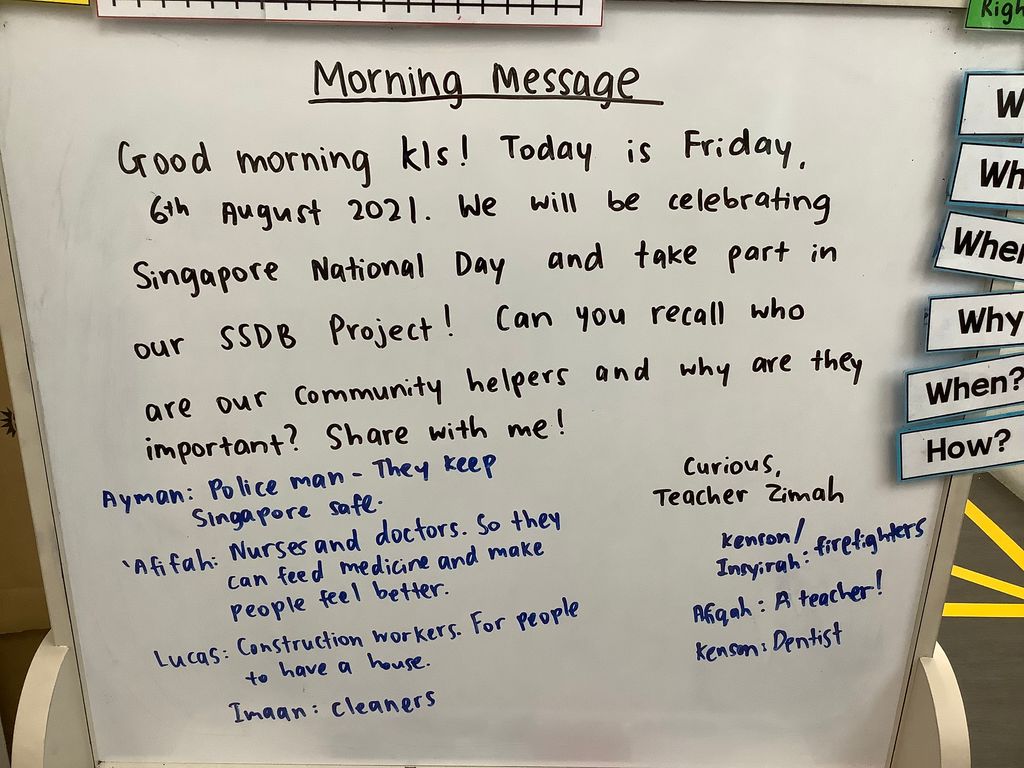 Righ
Morning Message
Good morning k1s! Today is Friday,
6th August 2021. We will be celebrating
Singapore National Day and take part in
our SSDB Project! Can you recall who
are our community helpers and why are they
important? Share with me!
Curious,
Teacher Zimah
Ayman: Police man - They keep
Singapore safe.
'Afifah: Nurses and doctors. So they
can feed medicine and make
people feel better.
Lucas: Construction workers. For people
to have a house.
Imaan: cleaners
Kenson/
Insyirah: firefighters
Afiqah: A teacher!
Kenson: Dentist
W
Wh
Wher
Why
When?
How?